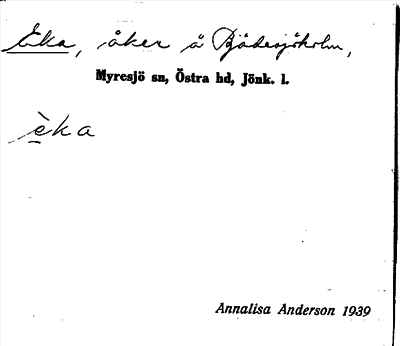 Eka, åker å Bjädesjöholm,
Myresjö sn, Östra hd, Jönk. l.
èka
Annalisa Anderson 1939